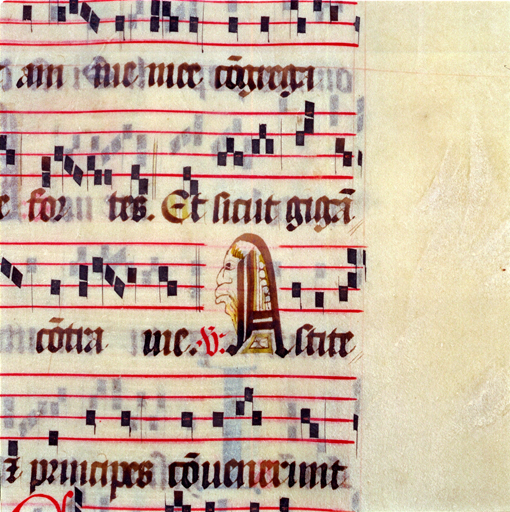 am sue mee cōgrega
for tes. Et sicut gigā
cōtra me. V. Astite
⁊ principes cōuenerunt